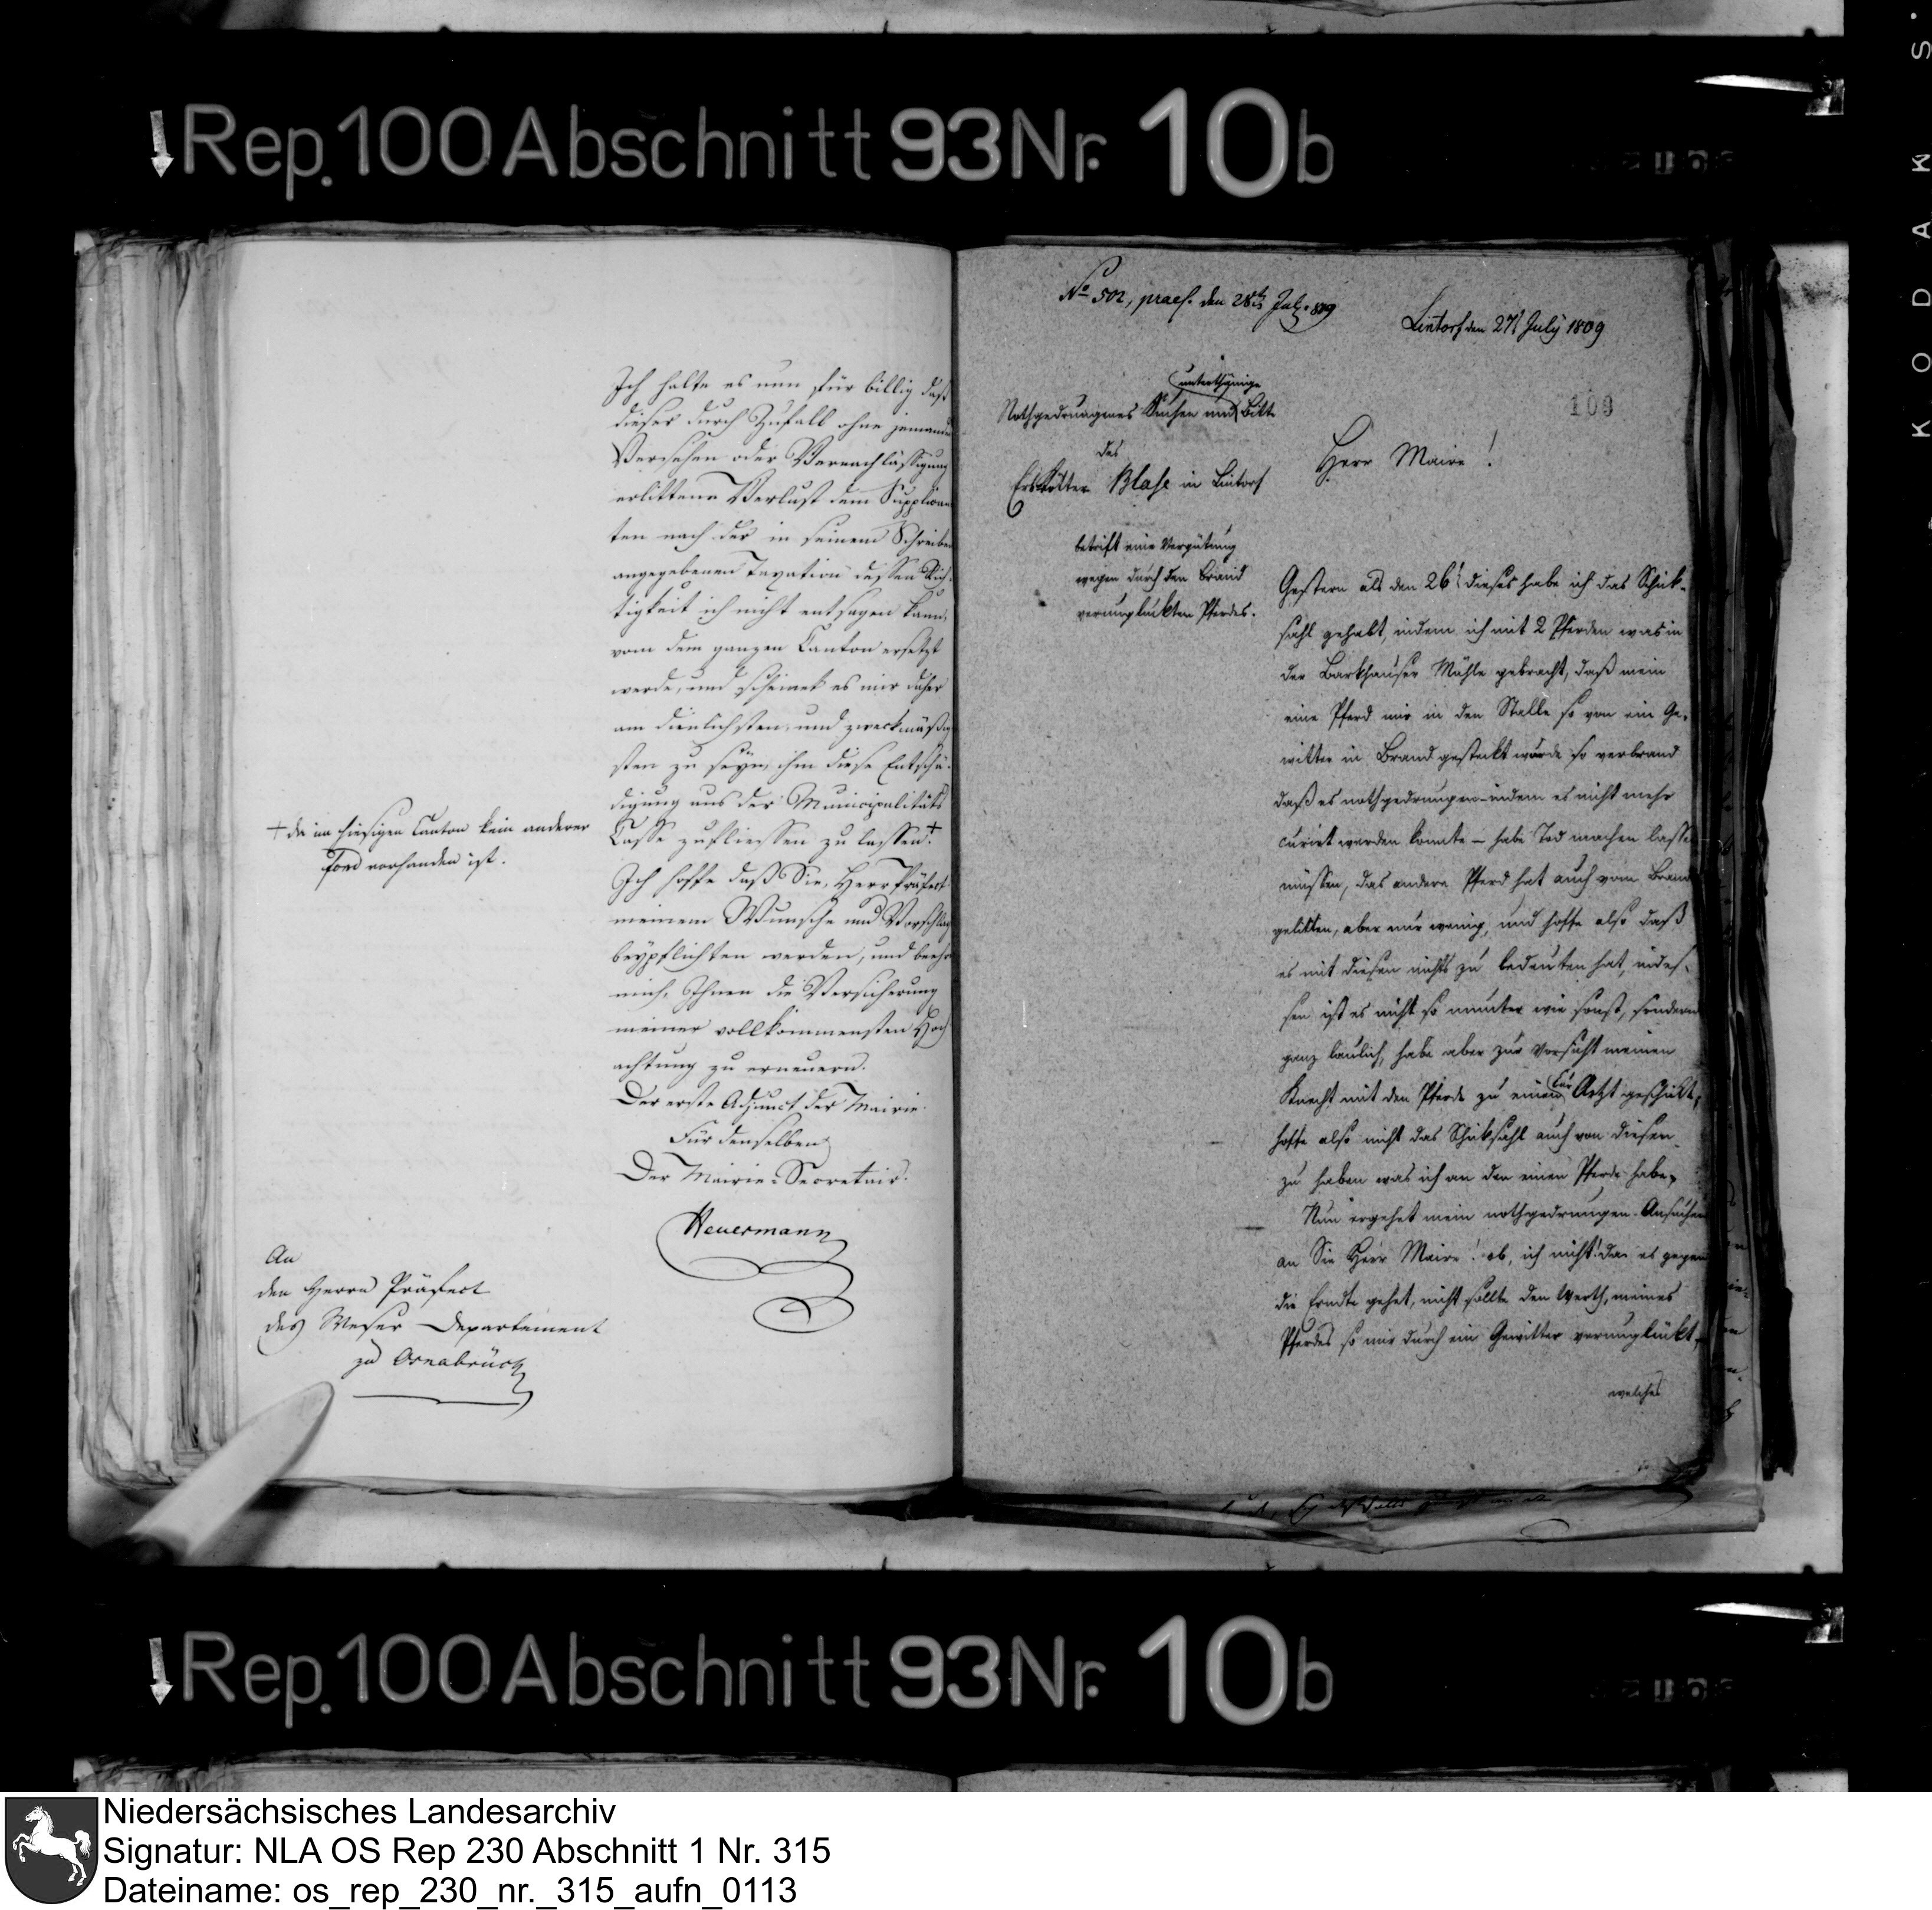 Rep. 100 Abschnitt 93 Nr. 10b
KODAK S.
Ich halte es nun für billig daß
dieser durch Zufall ohne jemandes
Versehen oder Vernachlässigung
erlittene Verlust dem Supplican
ten nach der in seinem Schreiben
angegebenen Taxation dessen Rich-
tigkeit ich nicht entsagen kann,
vom dem ganzen Canton ersetzt
werde, und scheinet es mir daher
am dienlichsten, und zweckmäßig
sten zu seyn, ihm diese Entschä-
digung aus der Municipalitäts
Casse zufliessen zu lassen. +
+ da im hiesigen Canton kein anderer
Fond vorhanden ist.
Ich hoffe daß Sie, Herr Präfect
meinem Wunsche und Vorschlag
beypflichten werden, und beehre
mich, Ihnen die Versicherung
meiner vollkommensten Hoch
achtung zu erneuern.
Der erste Adjunct der Mairie
Für denselben
Der Mairie-Secretair.
Heuermann
An
den Herrn Präfect
des Weser-Departement
zu Osnabrück
No 502, praes. den 28ten July 1809
Lintorf den 27t July 1809
109
unterthänige
Nothgedrungenes Suchen und Bitte
des
Erbkötter Blase in Lintorf
betrift eine Vergütung
wegen durch den Brand
verunglückten Pferdes.
Herr Maire!
Gestern als den 26t dieses habe ich das Schik-
sahl gehabt, indem ich mit 2 Pferden was in
der Barkhauser Mühle gebracht, daß mein
eine Pferd mir in den Stalle so von ein Ge-
witter in Brand gesteckt wurde so verbrand
daß es nothgedrungen – indem es nicht mehr
curirt werden konnte – habe Tod machen lassen
müssen, das andere Pferd hat auch vom Brand
gelitten, aber nur wenig, und hoffe also daß
es mit diesen nichts zu bedeuten hat, indes-
sen ist es nicht so munter wie sonst, sondern
ganz laulich, habe aber zur Vorsicht meinen
Knecht mit den Pferde zu einen Artzt geschikt,
hoffe also nicht das Schiksahl auch von diesen
zu haben was ich an den einen Pferde habe,
Nun ergehet mein nothgedrungen Ansuchen
an Sie Herr Maire! ob, ich nicht! da es gegen
die Erndte gehet, nicht sollte den Werth, meines
Pferdes so mir durch ein Gewitter verunglückt,
welches
Rep. 100 Abschnitt 93 Nr. 10b
Niedersächsisches Landesarchiv
Signatur: NLA OS Rep 230 Abschnitt 1 Nr. 315
Dateiname: os_rep_230_nr._315_aufn_0113